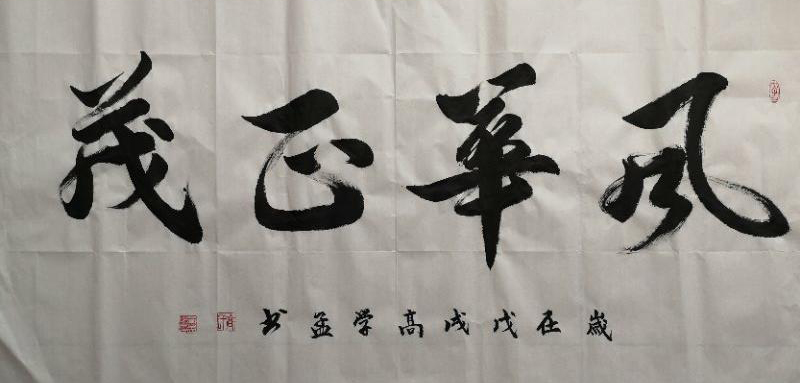 風華正茂
歲在戊戌高学孟书